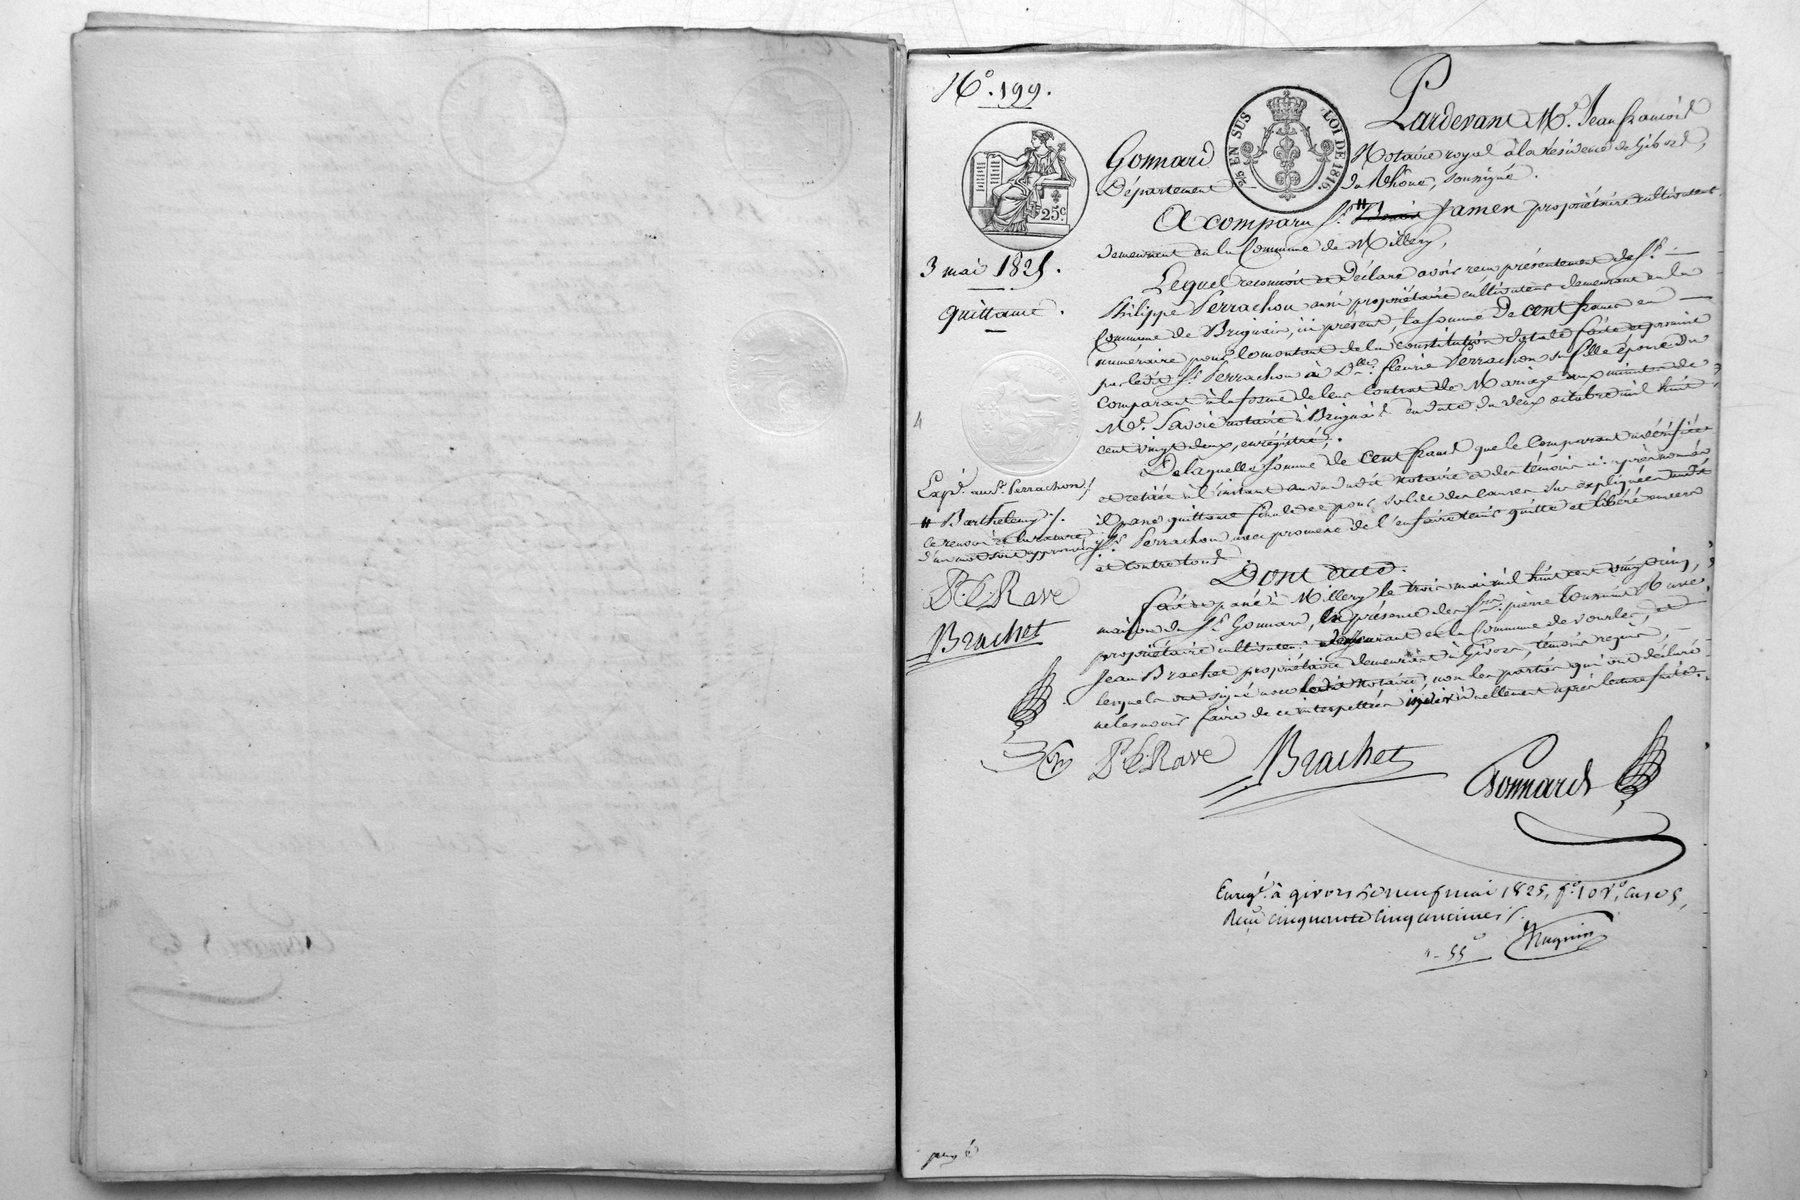 N.° 199.
25 EN SUS
LOI DE 1816.
25c.
3 mai 1825.
quittance.
4
Exp.n au Sr. Perrachon /.
# Barthelemy /.
ce renvoi et la rature
d'un mot sont approuvés /.
P. L. Rave
Brachet
Pardevant Me. Jean françois
Gonnard Notaire royal à la résidence de Givors,
Département du Rhône, soussigné.
A comparu Sr. # Jamen propriétaire cultivateur
demeurant en la Commune de Millery,
Lequel reconnoit et déclare avoir reçu présentement de Sr.
Philippe Perrachon ainé propriétaire cultivateur demeurant en la
Commune de Brignais, ici présent, la somme de cent francs en
numéraire pour le montant de la constitution dotale faite et promise
par ledit Sr. Perrachon à Dlle. fleurie Perrachon sa fille épouse du
comparant à la forme de leur Contrat de Mariage aux minutes de
Me. Savoie notaire à Brignais en date du deux octobre mil huit
cent vingt deux, enrégistré.
De laquelle somme de cent francs que le Comparant a vérifiée
et retirée à l'instant au vu dudit notaire et des témoins ci-après nommés
il passe quittance finale et pour solde des causes sus expliquées audit
Sr. Perrachon avec promesse de l'en faire tenir quitte et libéré envers
et contre tous.
Dont acte.
fait et passé à Millery le trois mai mil huit cent vingt cinq,
maison du Sr. Gonnard, en présence de Srs. pierre Rave
propriétaire cultivateur demeurant en la Commune de Vourles, et
Jean Brachet propriétaire demeurant à Givors, témoins requis,
lesquels ont signé avec ledit notaire, non les parties qui ont déclaré
ne le savoir faire de ce interpellées individuellement après lecture faite.
P. L. Rave Brachet Gonnard
Enregt. à givors le neuf mai 1825, f.° 10 v.°, cases 5,
Reçu cinquante cinq centimes /.
"- 55c